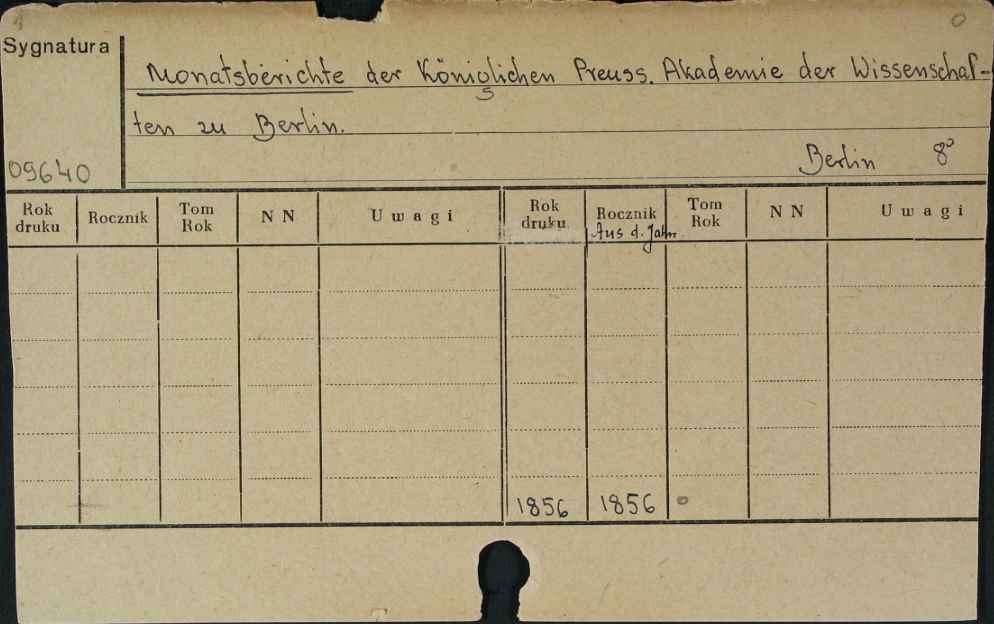 Sygnatura
Monatsberichte der Königlichen Preuss. Akademie der Wissenschaf-
ten zu Berlin.
Berlin 8°
09640
Rok druku Rocznik Tom Rok NN Uwagi Rok druku Rocznik Tom Rok NN Uwagi
Aus d. Jahr.
1856 1856